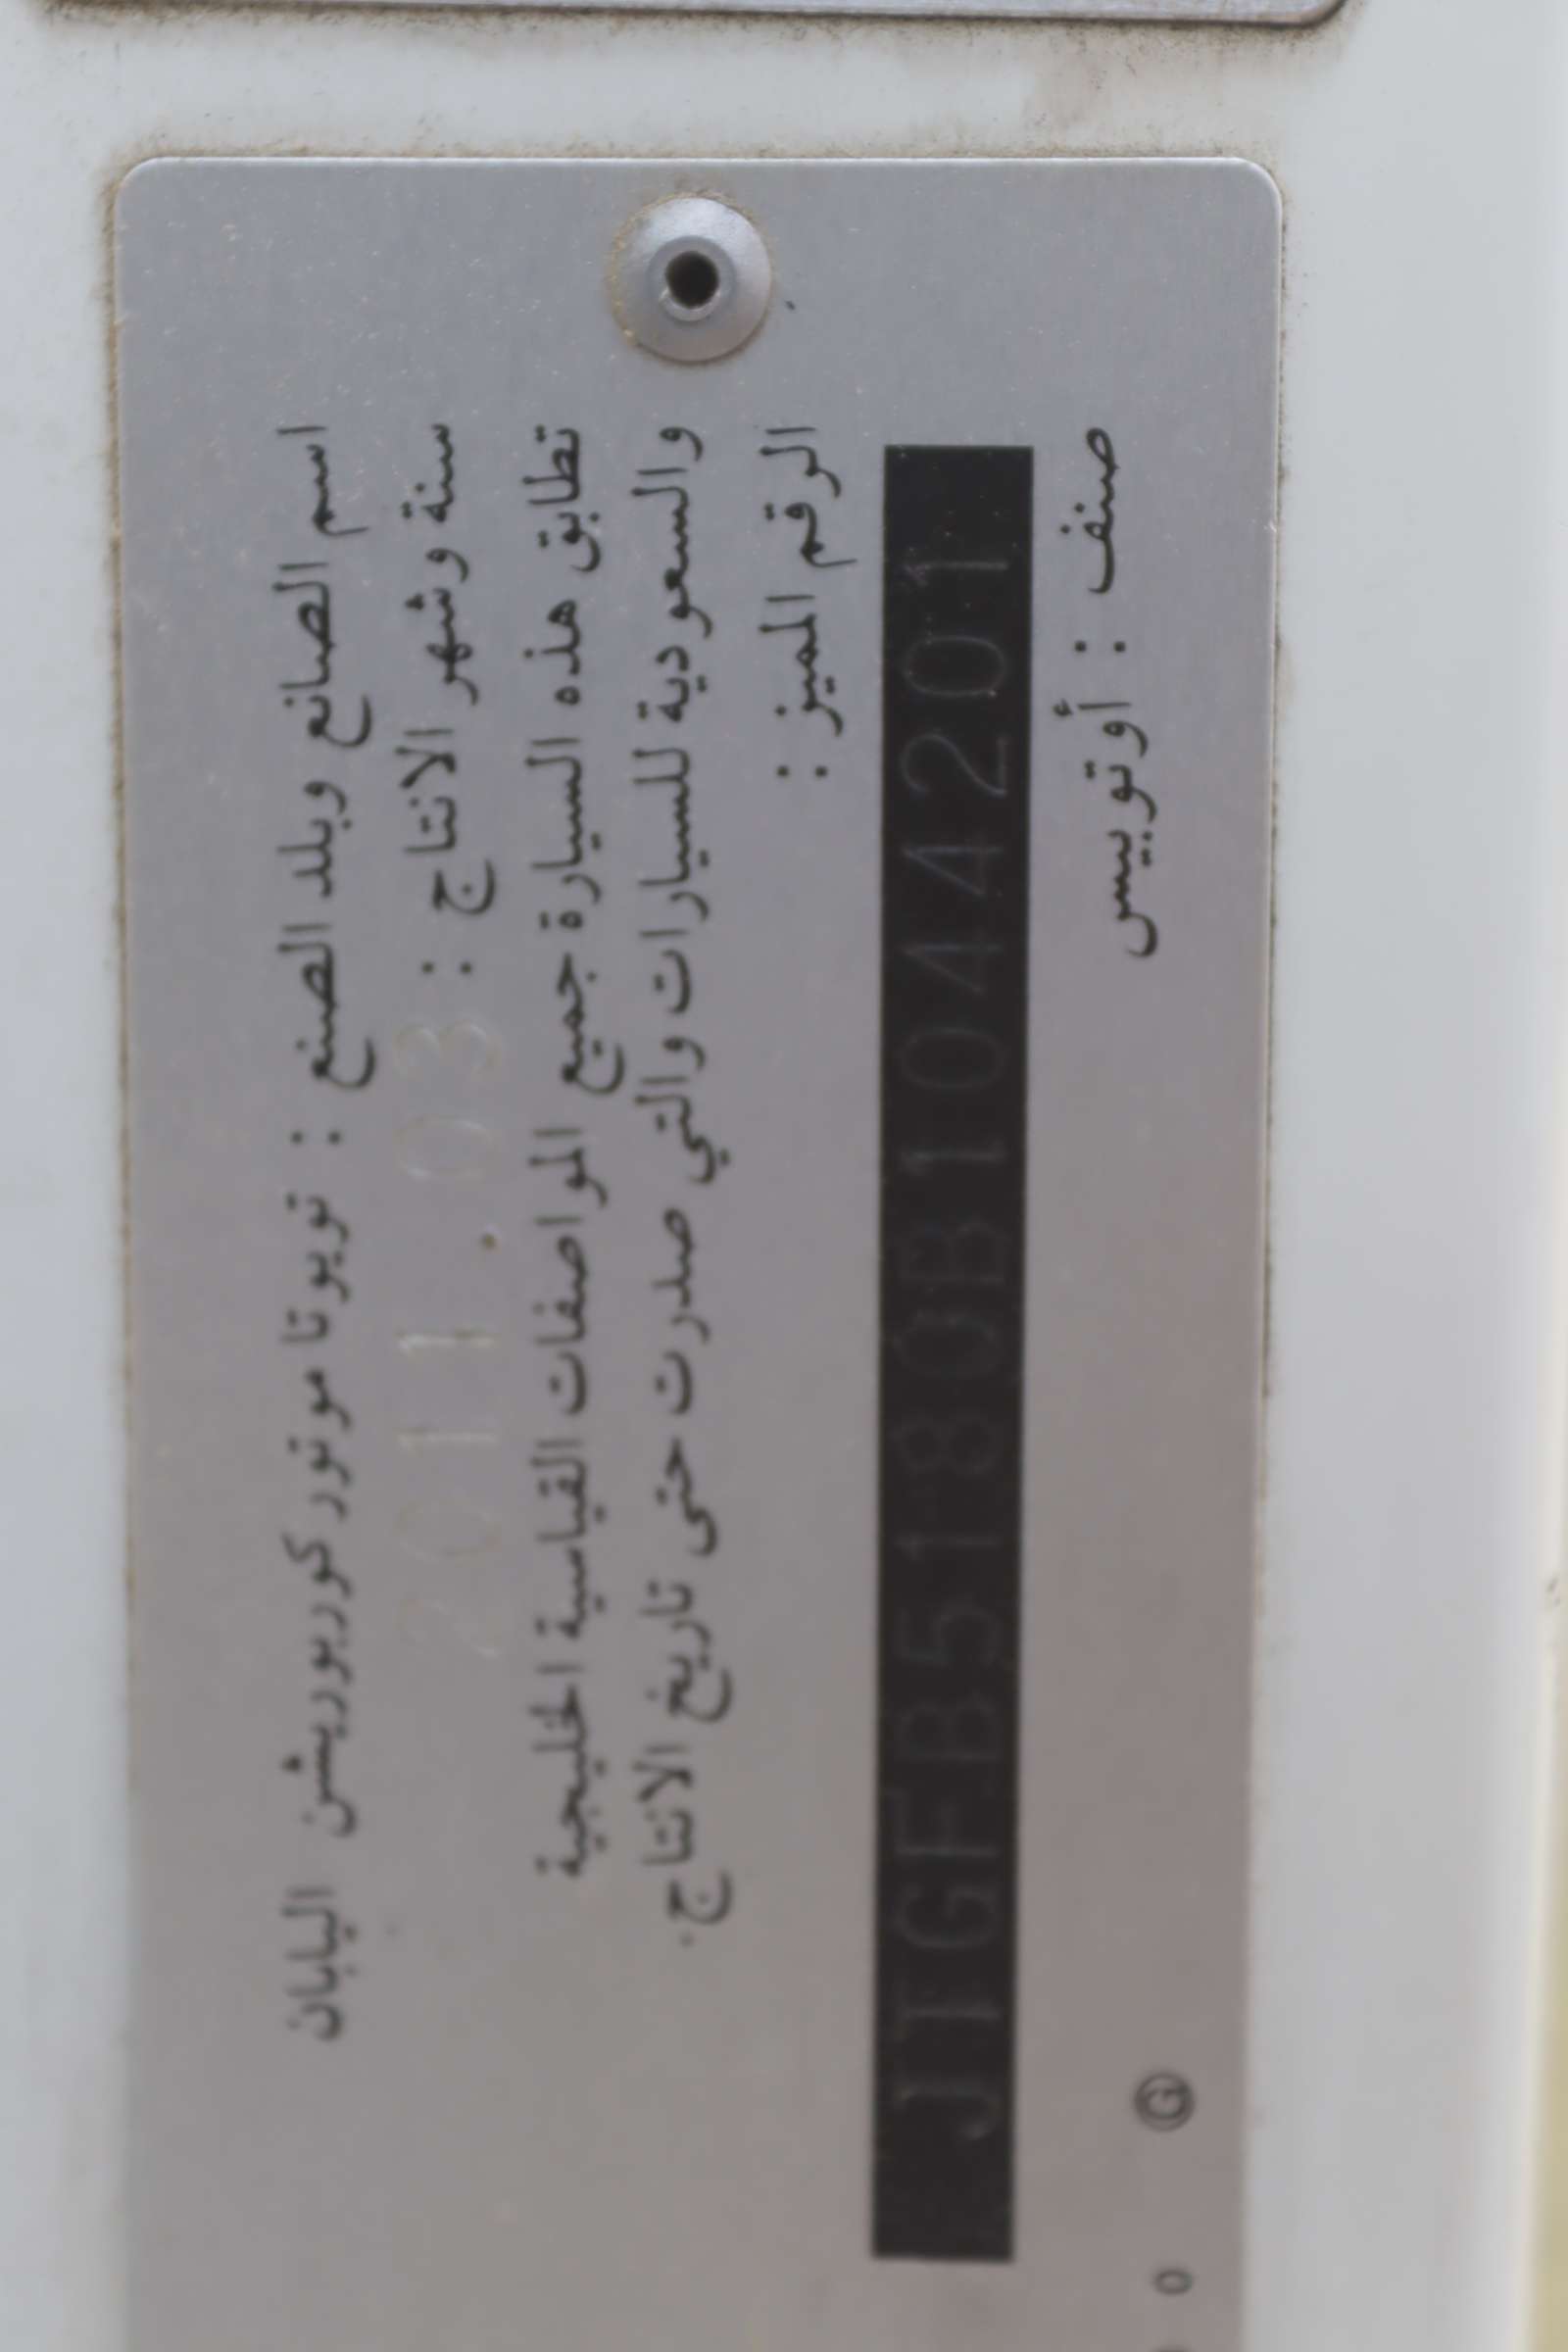 اسم الصانع وبلد الصنع : تويوتا موتور كوربوريشن اليابان
سنة وشهر الانتاج : 2011.03
تطابق هذه السيارة جميع المواصفات القياسية الخليجية
والسعودية للسيارات والتي صدرت حتى تاريخ الانتاج.
الرقم المميز :
JTGFB5180B1044201
صنف : أوتوبيس
G
0